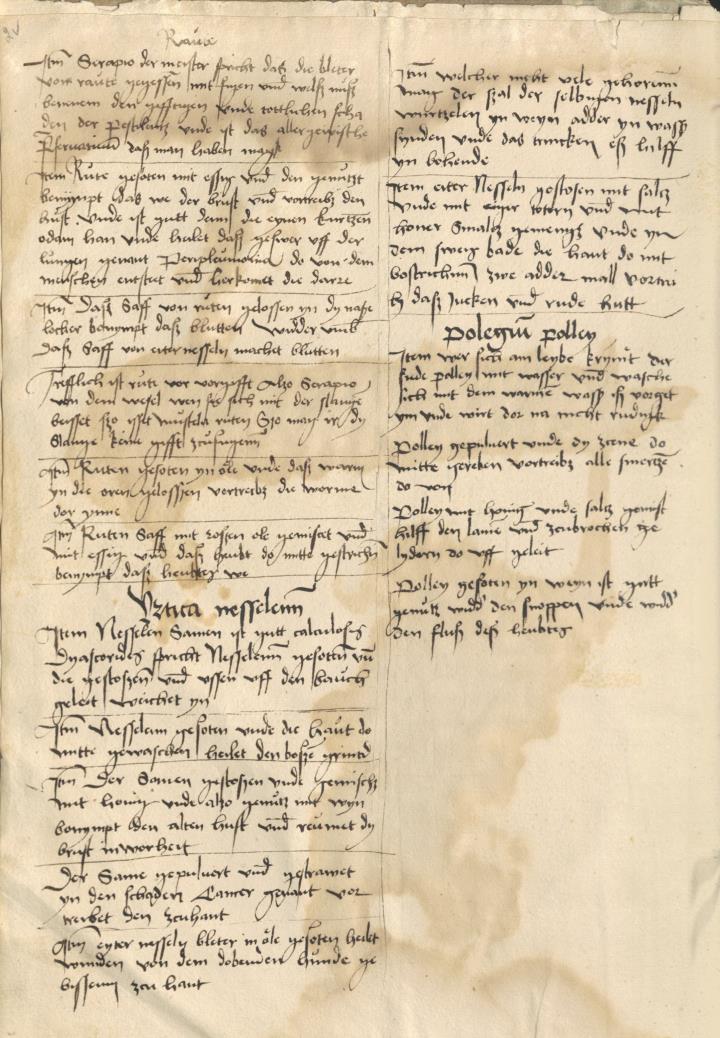 2v
Raute
Itm Serapio der meister spricht das die bleter
von raute gegessen mit figen und welsch nuß
benemen den gifftigen unde tottlichen scha
den der Pestilentz unde ist das aller gewisste
Preservativum daß man haben magk
Item Rute gesoten mit essig und den genutzt
benympt das we der brust und vortreibt den
hust. Unde ist gutt dem die eynen kurtzen
odam han unde heilet daß geswer uff der
lungen genant Peripleumonia do von dem
menschen entstet und herkomet die darre
Itm Daß Saff von ruten gelossen yn dy naße
locher benympt daß blutten Widder umb
daß Saff von eiternesseln machet blutten
Trefflich ist rute vor vorgifft Alzo Serapio
von dem wesel wen sie sich mit der slangen
beisset szo isset mustela ruten Szo mag ir dy
slange keine gifft zcufugenn
Itm Ruten gesoten yn ole unde daß warm
yn die oren gelossen vortreibt die worme
dor ynne
Itm Ruten Saff mit rosen ole gemiscet und
mit essig und daß heubt do mitte gestrichen
benympt daß heubtes we
Urtica nesselenn
Item Nesselen Samen ist gutt calculosis
Dyascorides spricht Nesselenn gesoten und
die gestossen und ussen uff den bauch
geleit weichet yn
Itm Nesselenn gesoten unde die haut do
mitte gewaschen heilet den bosze grintd
Itm Der Samen gestossen unde gemischt
mit honig unde alzo genutz mit wyn
benympt den alten hust und reumet dy
brust inworheit
Der Same gepulvert und gestrawet
yn den schaden Cancer genant vor
treibet den zcuhant
Itm eyter nesseln bleter in ole gesoten heilet
wunden von dem dobenden hunde ge
bissenn zcu hant
Itm welcher nicht vele gehorenn
mag der szal der selbigen nesseln
wurtzelen yn weyn adder yn wasser
synden unde das trincken eß hilff
yn behende
Item eiter Nesseln gestosen mit saltz
Unde mit eiger totern und mit
honer smaltz gemengt Unde yn
dem sweis bade die haut do mit
bestrichenn zwe adder mall vortri
bt daß Jucken und rude hutt
Polegiu polley
Item wer sich am leybe krymt der
sude polley mit wasser und wasche
sich mit dem warme wasser iß vorget
ym unde wirt dor na nicht rudigk
Polley gepulvert unde dy zcene do
mitte gereben vortreibt alle smertze
do von
Polley mit honig unde saltz gemist
hilff den lame und zcubrochen ge
lydern do uff geleit
Polley gesoten yn weyn ist gutt
genutz widder den snoppen unde widder
den fluß deß heubtes